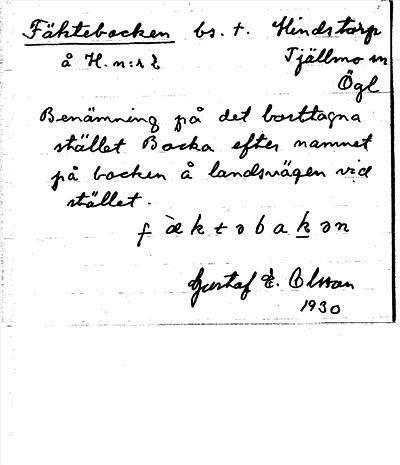 Fäktebacken bs. t. Hindstorp
å H. n:r 2 Tjällmo sn
Ögl
Benämning på det borttagna
stället Backa efter namnet
på backen å landsvägen vid
stället.
f æ̀ k t ə b a k ə n
Gustaf E. Olsson
1930